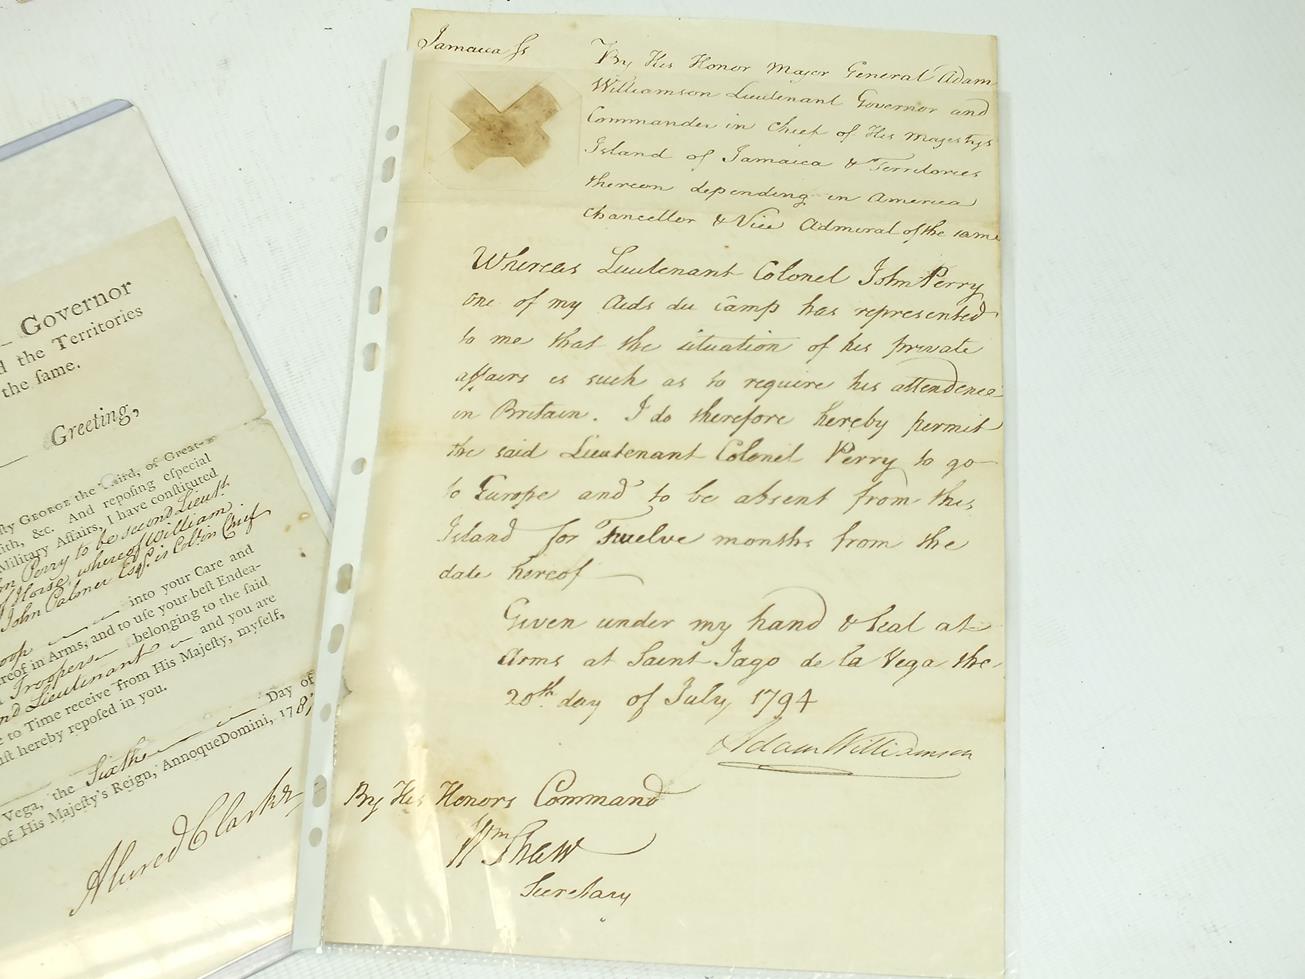 Jamaica ss
By His Honor Major General Adam
Williamson Lieutenant Governor and
Commander in Chief of His Majestys
Island of Jamaica & Territories
thereon depending in America
Chancellor & Vice Admiral of the same
Whereas Lieutenant Colonel John Perry
one of my Aids du Camp has represented
to me that the situation of his private
affairs is such as to require his attendence
in Britain. I do therefore hereby permit
the said Lieutenant Colonel Perry to go
to Europe and to be absent from this
Island for Twelve months from the
date hereof
Given under my hand & Seal at
Arms at Saint Jago de la Vega the
20th day of July 1794
Adam Williamson
By His Honors Command
Wm Shaw
Secretary
Governor
d the Territories
the same.
Greeting,
sty GEORGE the Third, of Great-
ith, &c. And reposing especial
Military Affairs, I have constituted
Perry to be second Lieutt.
Horse, whereof William
John Palmer Esqr. is Colo. in Chief
oop into your Care and
ereof in Arms, and to use your best Endea-
Troopers belonging to the said
nd Lieutenant and you are
e to Time receive from His Majesty, myself,
ust hereby reposed in you.
Vega, the Sixth Day of
of His Majesty's Reign, AnnoqueDomini, 178
Alured Clarke